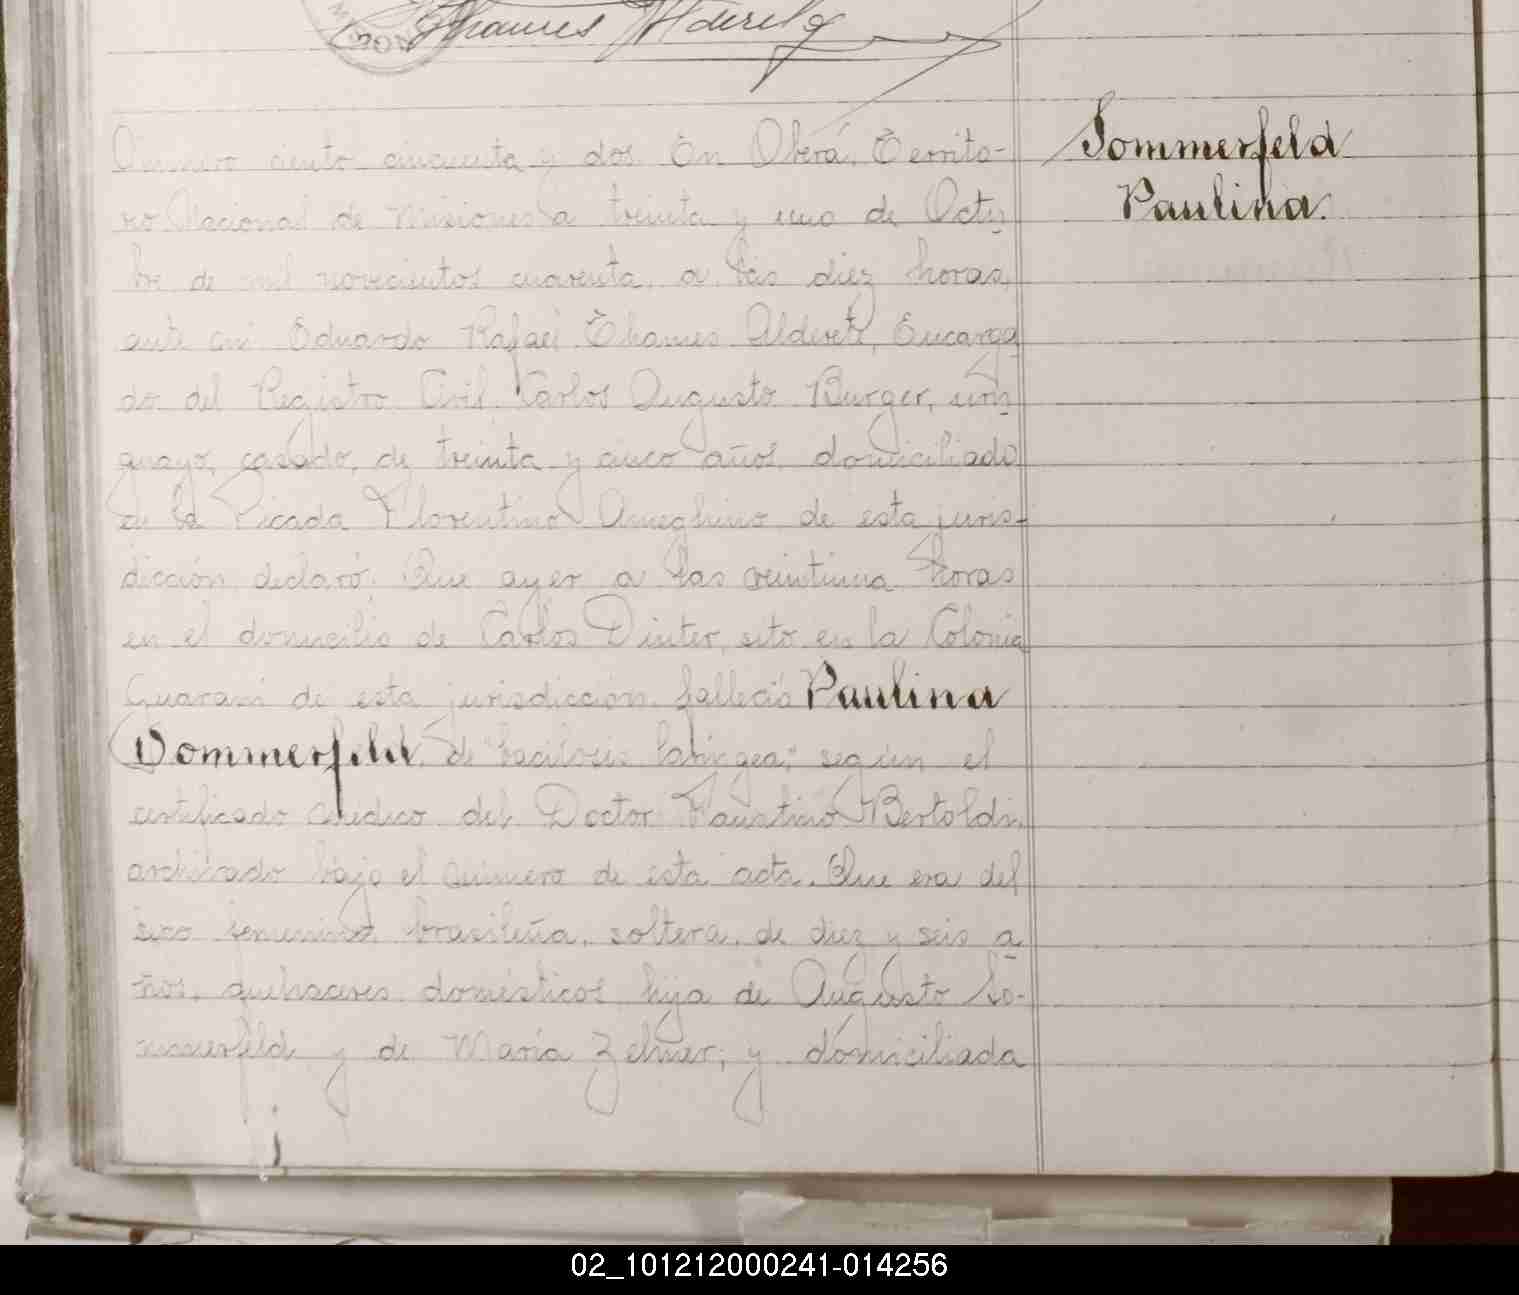 Thames Alderete
Número ciento cincuenta y dos. En Oberá, Territo-
rio Nacional de Misiones a treinta y uno de Octu-
bre de mil novecientos cuarenta, a las diez horas,
ante mi Eduardo Rafael Thames Alderete, Encarga
do del Registro Civil, Carlos Augusto Burger, uru-
guayo, casado, de treinta y cinco años, domiciliado
en la Picada Florentino Ameghino de esta juris-
dicción declaró: Que ayer a las veintiuna horas
en el domicilio de Carlos Dinter, sito en la Colonia
Guaraní de esta jurisdicción falleció Paulina
Sommerfeld, de "bacilosis laríngea," según el
certificado médico del Doctor Faustino Bertoldi,
archivado bajo el número de esta acta. Que era del
sexo femenino, brasileña, soltera, de diez y seis a
ños, quehaceres domésticos hija de Augusto So-
mmerfeld y de María Zelmer; y domiciliada
Sommerfeld
Paulina.
02_101212000241-014256